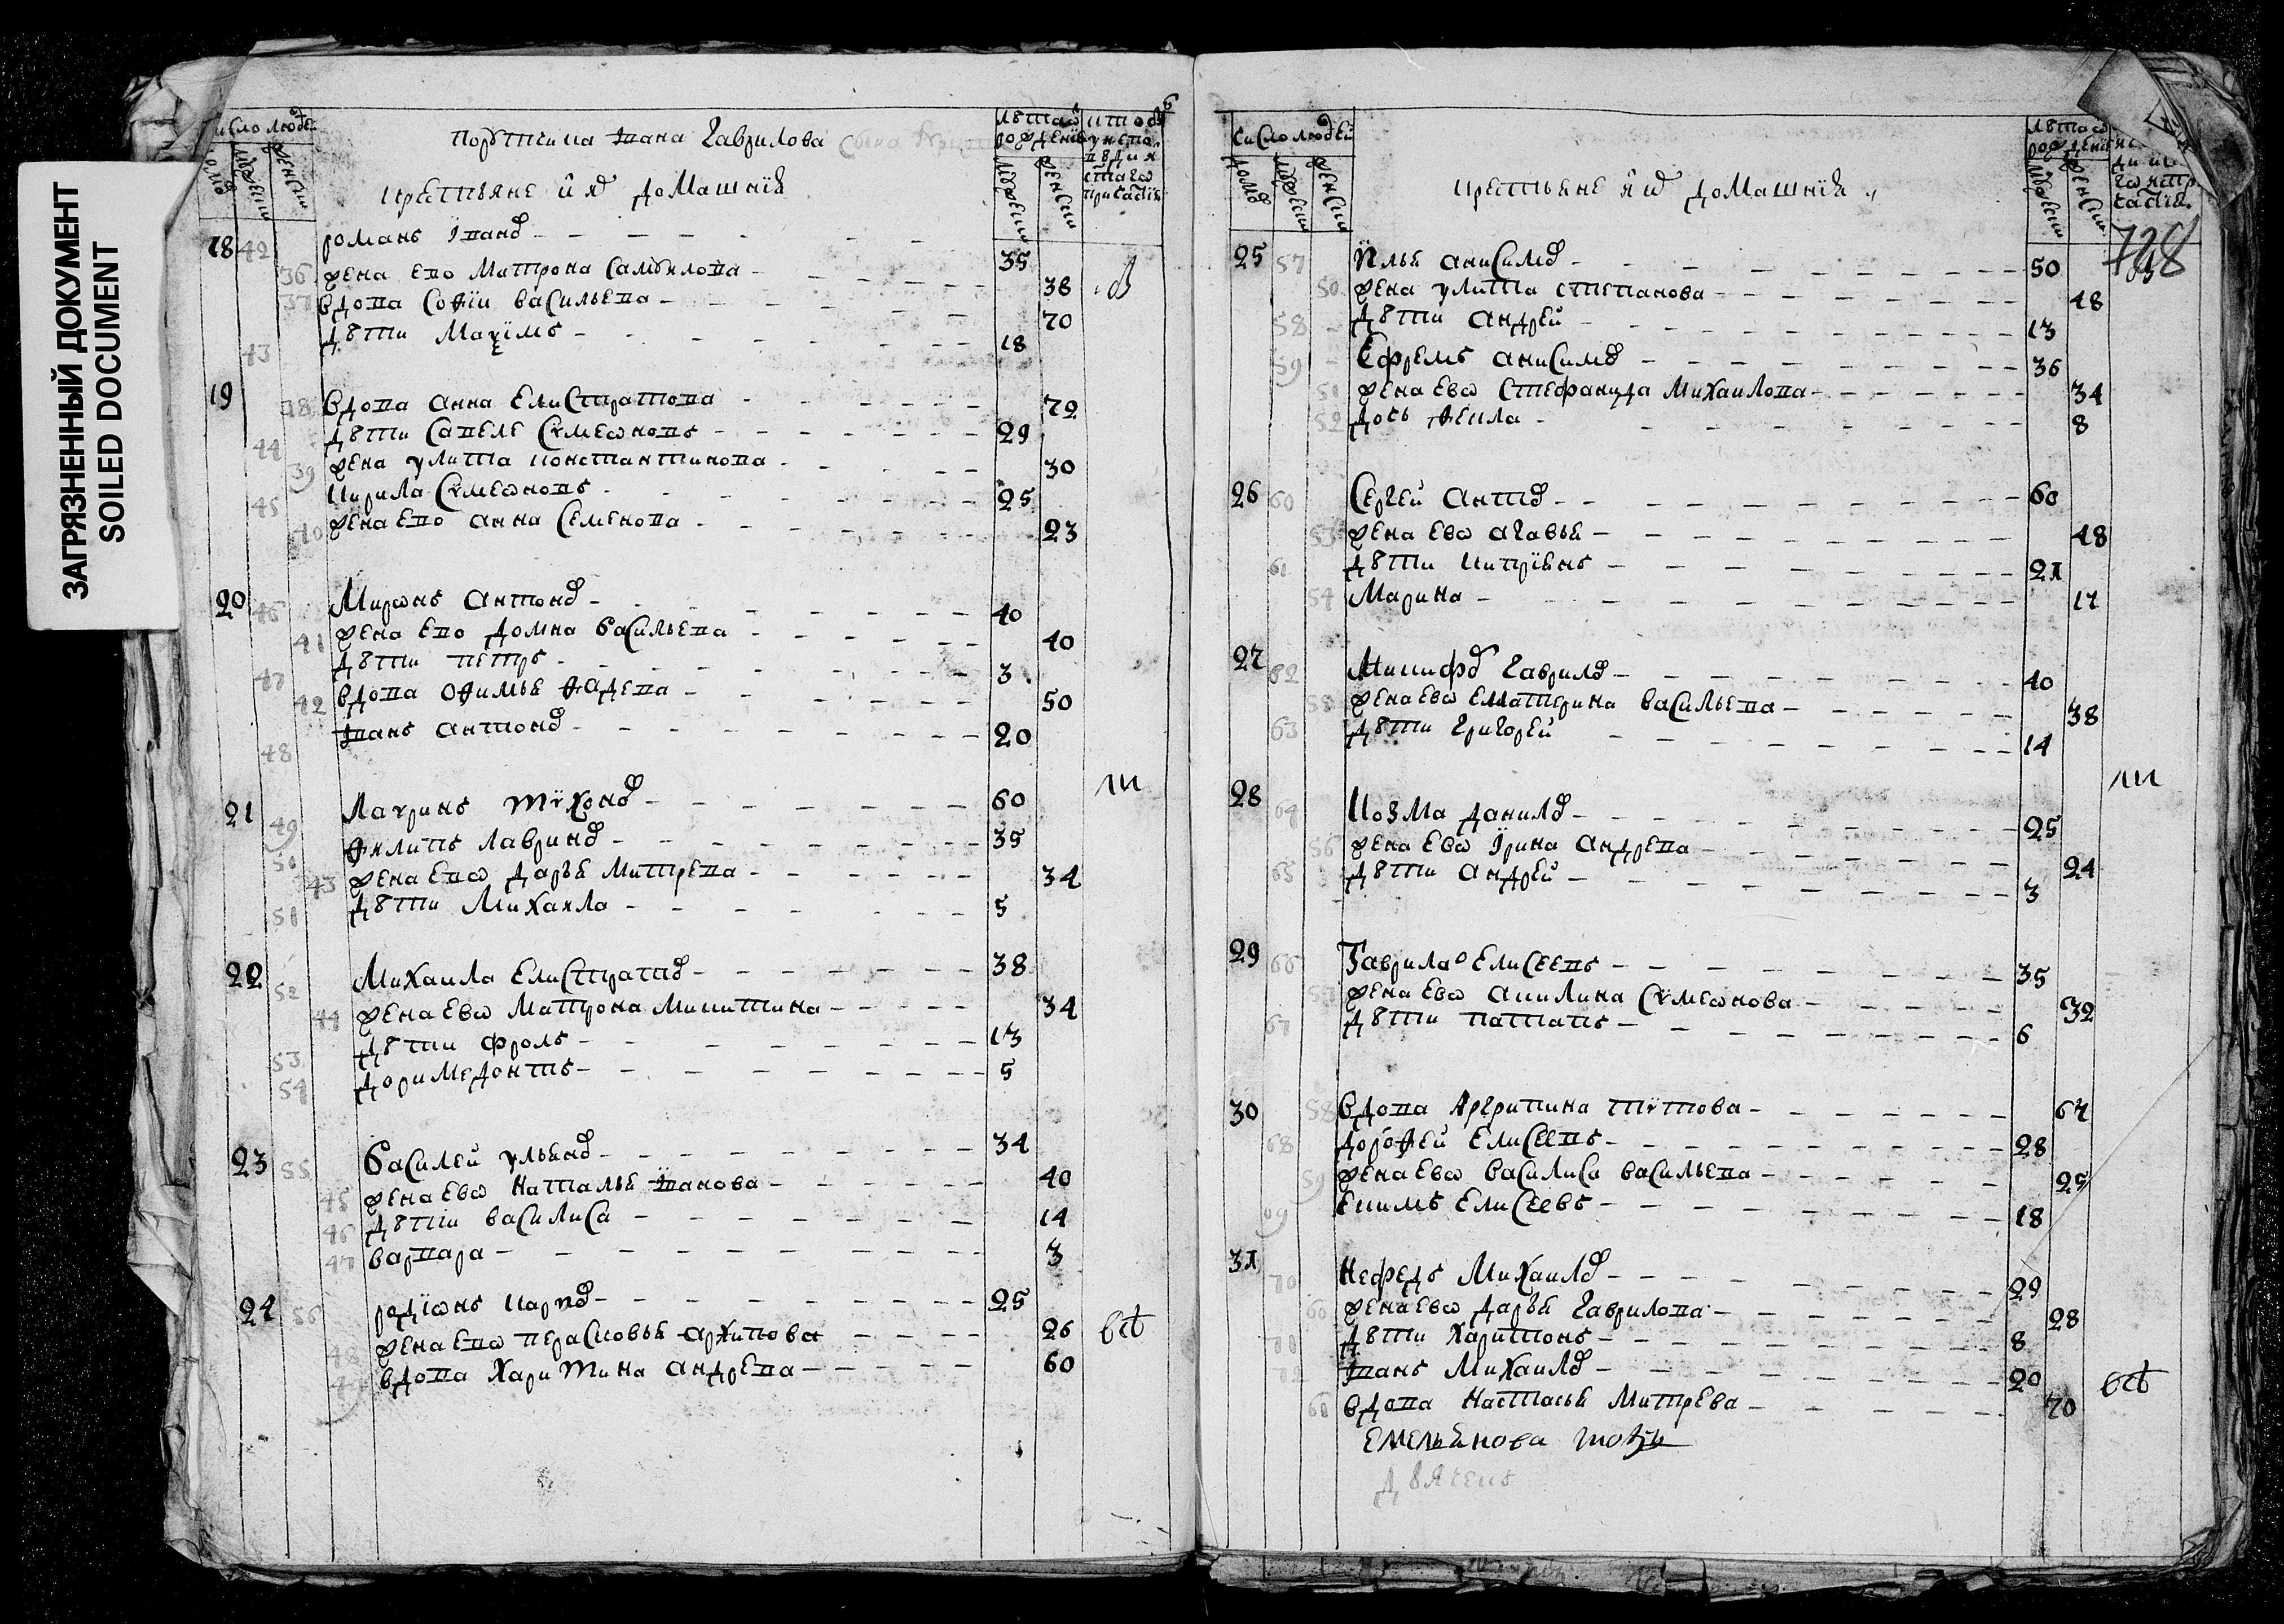 ЗАГРЯЗНЕННЫЙ ДОКУМЕНТ
SOILED DOCUMENT
число людей
домов
мужеск
женск
порутчика Ивана Гаврилова сына
крестьяне и их домашнїя
лѣта от рождения
мужеск
женск
18 42 романъ Iванов 35
36 жена ево Матрона Самоилова 38
37 вдова Софїи васильева 70
43 дѣти Маѯїмъ 18
19 38 вдова анна Елистратова 72
44 дѣти Савелє Сѵмеѡновъ 29
39 жена улита константинова 30
45 кирила Сѵмеѡновъ 25
40 жена ево анна Семенова 23
20 46 Миронъ антонов 40
41 жена ево домна василъева 40
47 дѣти петръ 3
42 вдова офимья фадева 50
48 Iванъ антонов 20
21 49 Лаѵринъ тїхонов 60
50 филипъ лавринов 35
43 жена евѡ дарья Митрева 34
51 дѣти Михаила 5
22 52 Михаила Елистратов 38
44 жена евѡ Матрона Микитина 34
53 дѣти фролъ 13
54 доримедонтъ 5
23 55 василей ульянов 34
45 жена евѡ Наталья Iванова 40
46 дѣти василиса 14
47 варвара 3
24 56 родїѡнъ карпов 25
48 жена евѡ перасковья архипова 26
49 вдова харитина андрева 60
число людей
домов
мужеск
женск
крестьяне и их домашнїя
лѣта от рождения
мужеск
женск
728
25 57 Илья анисимов 50
50 жена улита степанова 48
58 дѣти андрей 13
59 Ефремъ анисимов 36
51 жена евѡ Стефанида Михаилова 34
52 дочь фекла 8
26 60 Сергей антипов 60
53 жена евѡ агавья 48
61 дѣти киприянъ 21
54 Марина 17
27 62 Никифор гаврилов 40
55 жена евѡ Екатерина василъева 38
63 дѣти григорей 14
28 64 козма данилов 25
56 жена евѡ Iрина андрева 24
65 дѣти андрей 3
29 66 Гаврила Елисеевъ 35
57 жена евѡ акилина Сѵмеѡнова 32
67 дѣти патапъ 6
30 58 вдова Агрипина тїтова 67
68 дорофей Елисеевъ 28
59 жена евѡ василиса василъева 25
69 Екимъ Елисеевъ 18
31 70 Нефедъ Михаилов 29
60 жена евѡ дарья гаврилова 28
71 дѣти харитонъ 8
72 Iванъ Михаилов 20
61 вдова настасья Митрева 70
емельянова
дьячекъ